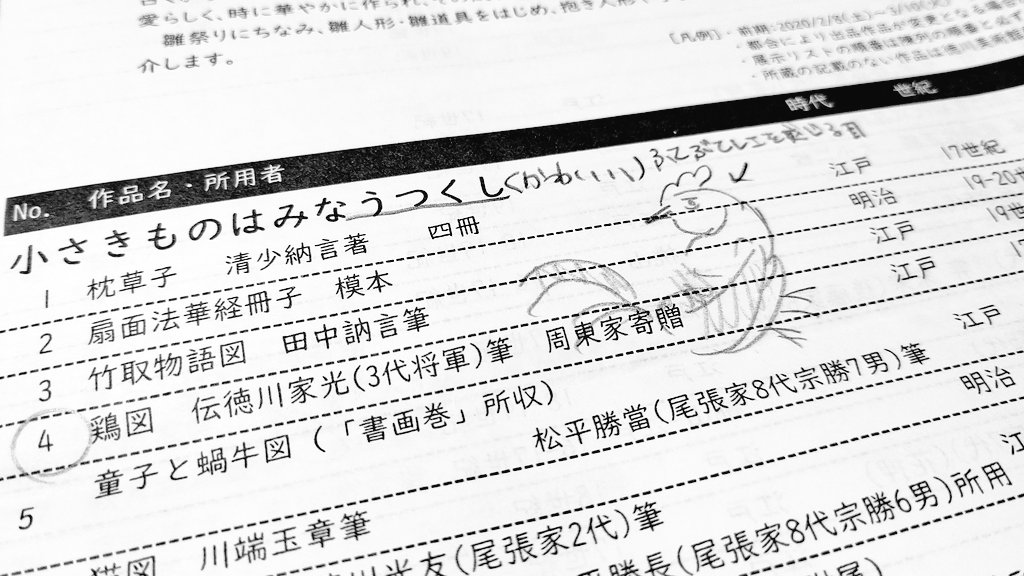 愛らしく、時に華やかに作られ、その
雛祭りにちなみ、雛人形・雛道具をはじめ、抱き人形や
介します。
[凡例]・前期:2020/2/8(土)~3/10(火)
・都合により出品作品が変更となる場合
・展示リストの順番は陳列の順番と必ず
・所蔵の記載のない作品は徳川美術館
No. 作品名・所用者 時代 世紀
小さきものはみなうつくし(かわいい)
1 枕草子 清少納言著 四冊 江戸 17世紀
2 扇面法華経冊子 模本 明治 19-20世
3 竹取物語図 田中訥言筆 江戸 19世
4 鶏図 伝徳川家光(3代将軍)筆 周東家寄贈 江戸 17
童子と蝸牛図(「書画巻」所収)
5 松平勝當(尾張家8代宗勝7男)筆 江戸
猫図 川端玉章筆 明治
川光友(尾張家2代)筆 江
平勝長(尾張家8代宗勝6男)所用